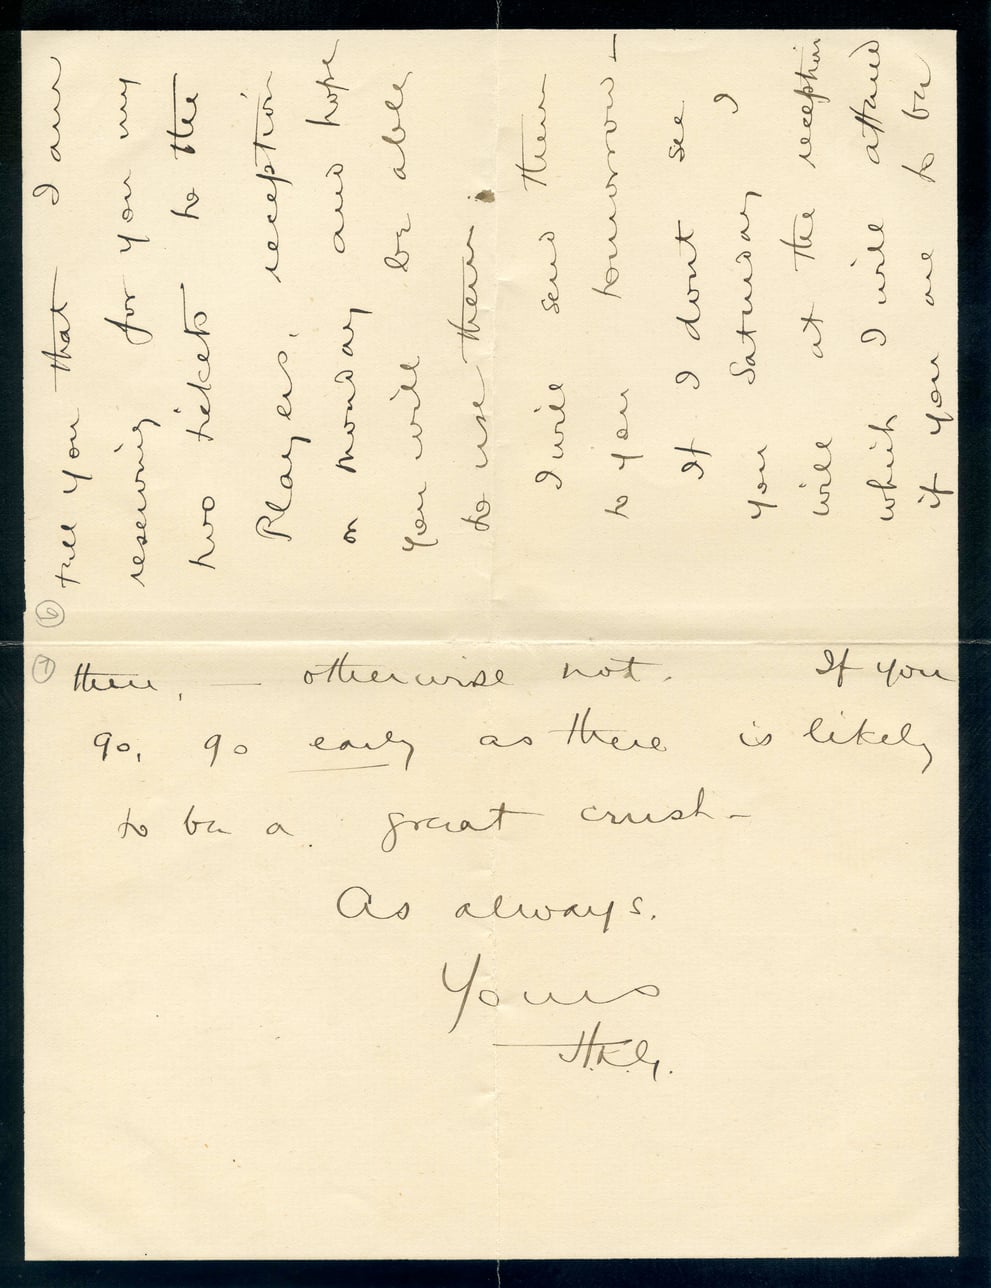 6
tell you that I am
reserving for you my
two tickets to the
Players' reception
on monday and hope
you will be able
to use them.
I will send them
to you tomorrow—
If I dont see
you Saturday I
will at the reception
which I will attend
if you are to be
7
there, — otherwise not. If you
go, go early as there is likely
to be a great crush—
As always.
Yours
H.K.G.